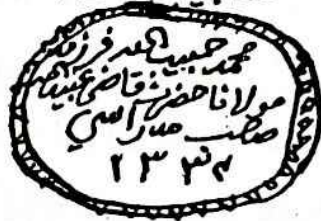 محمد حبیب اللہ فرزند
مولانا حضرت قاضی عبیداللہ
صاحب مدراسی
۱۳۳۴